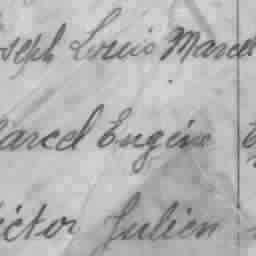 oseph Louis Marcel
arcel Eugène
ictor Julien